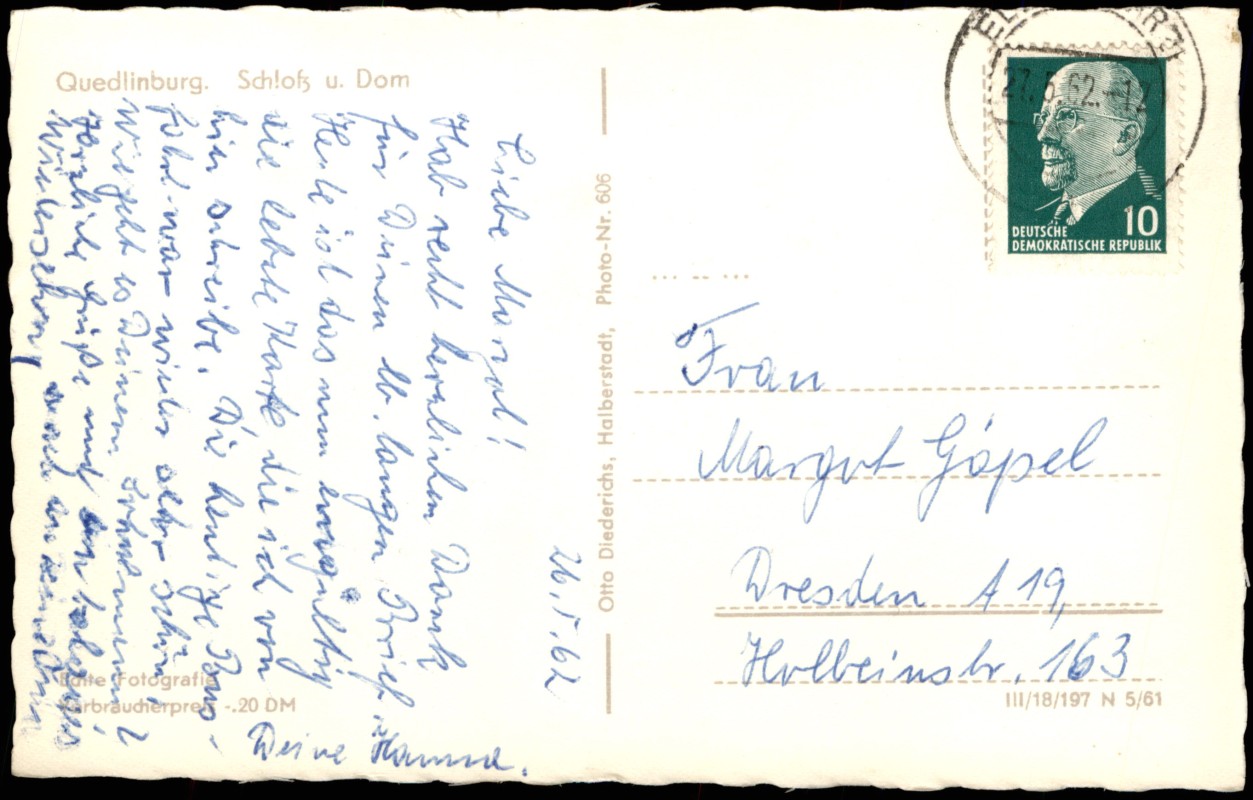 Quedlinburg. Schloß u. Dom
26.5.62
Liebe Margot!
Hab recht herzlichen Dank
für Deinen lb. langen Brief.
Heute ist das nun engültig
die letzte Karte die ich von
hier schreibe. Die heutige Bus-
fahrt war wieder sehr schön.
Wie geht es Deinem
Herzliche Grüße und ein baldiges
Wiedersehen,
Deine Hanna.
Echte Fotografie
Verbraucherpreis -.20 DM
Otto Diederichs, Halberstadt, Photo-Nr. 606
27.5.62.-12
DEUTSCHE
DEMOKRATISCHE REPUBLIK
10
Frau
Margot Göpel
Dresden A 19,
Holbeinstr. 163
III/18/197 N 5/61